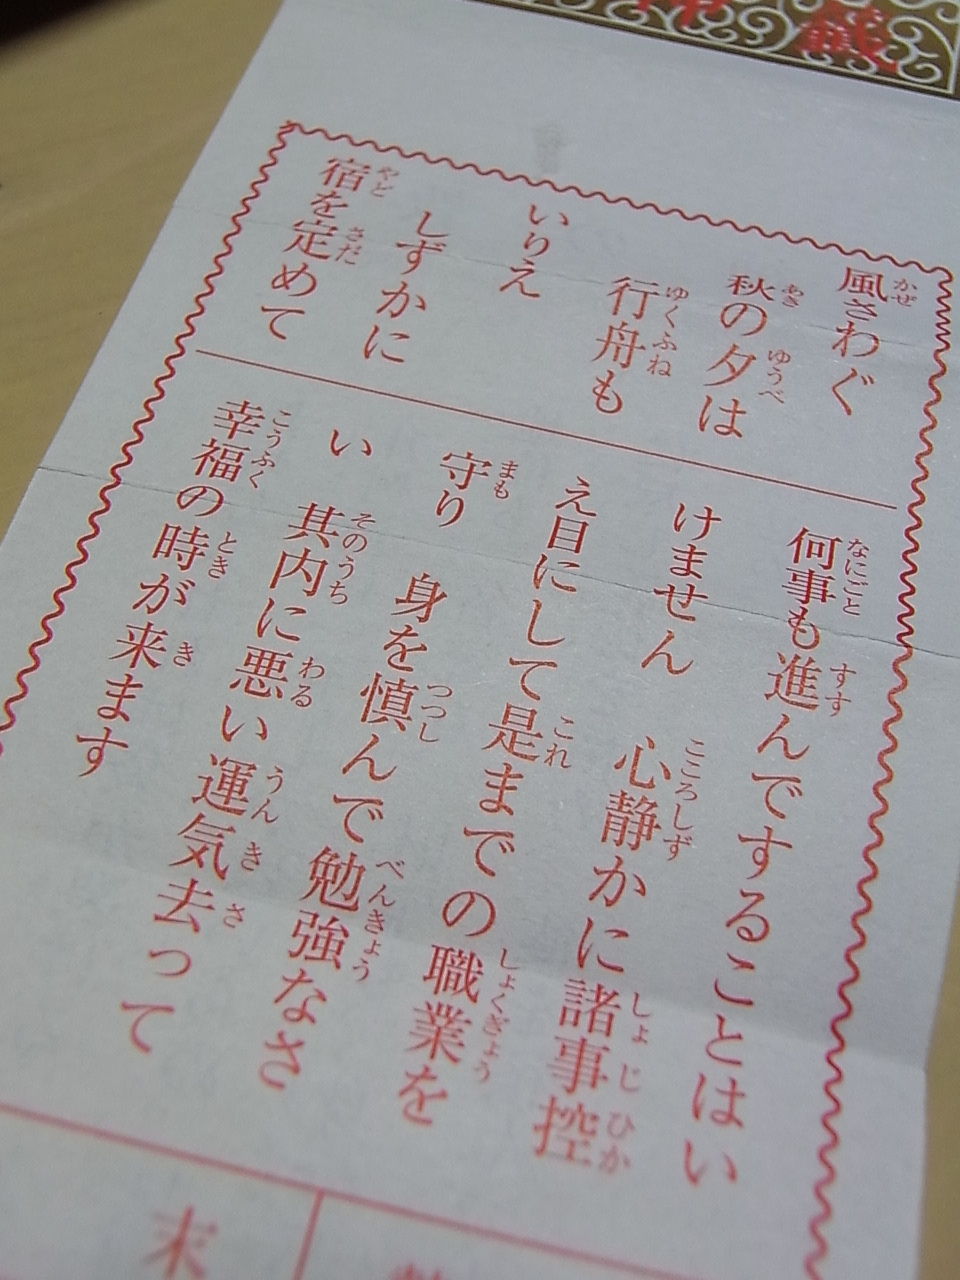 籤
風さわぐ
秋の夕は
行舟も
いりえ
しずかに
宿を定めて
何事も進んですることはい
けません 心静かに諸事控
え目にして是までの職業を
守り 身を慎んで勉強なさ
い 其内に悪い運気去って
幸福の時が来ます
末